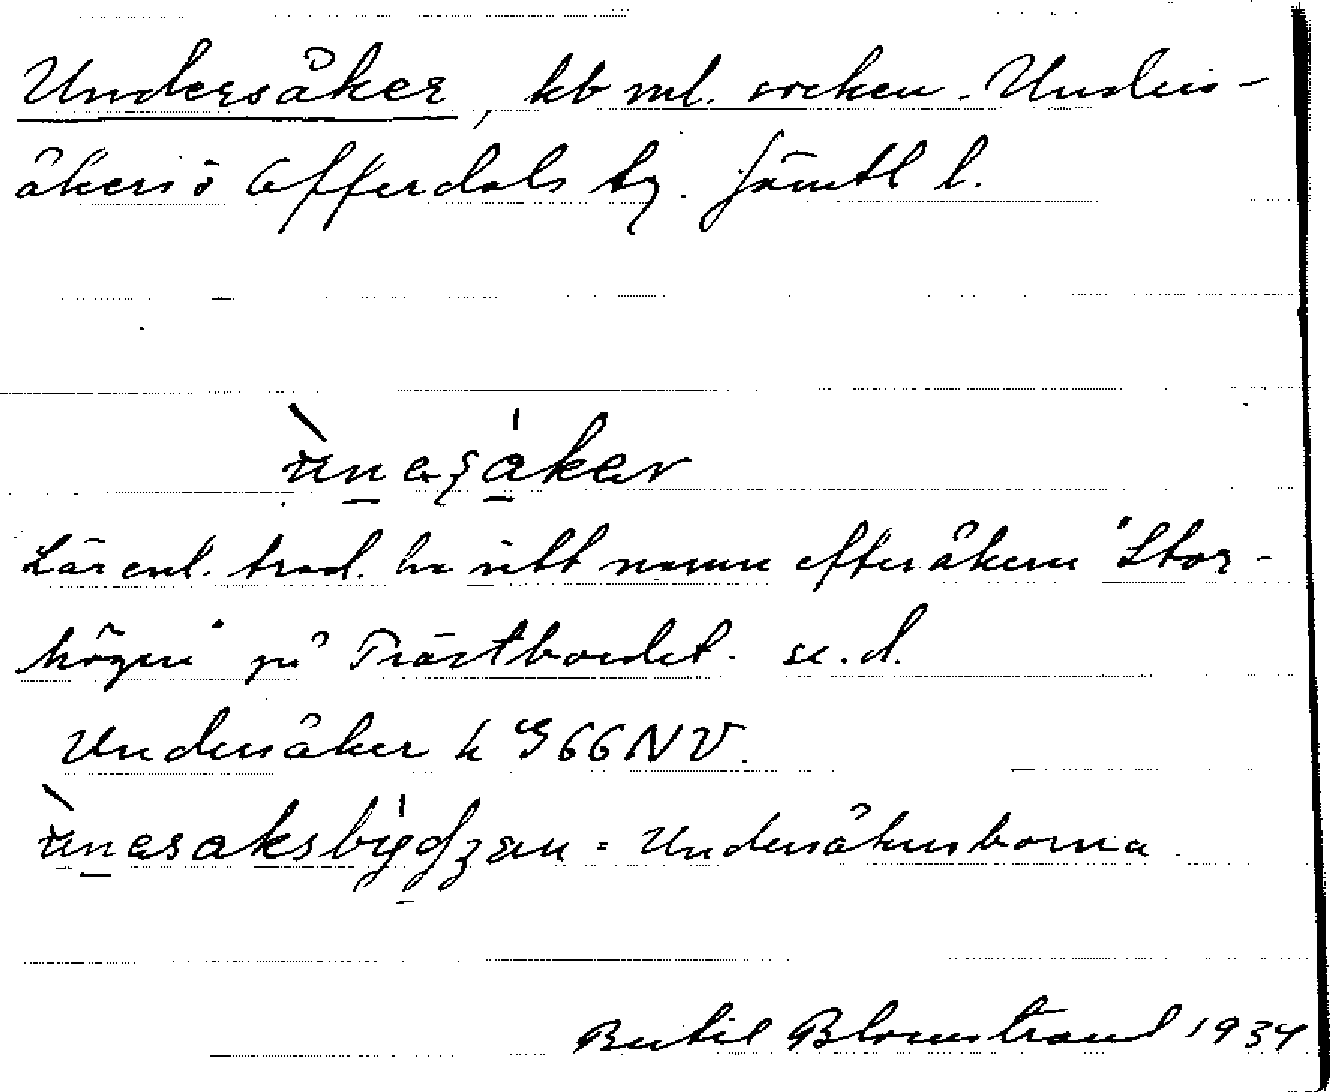 Undersåker, kb ml. socken. Unders-
åkers o Offerdals tg. Jämtl l.
ùnesåker
Lär enl. trad. ha sitt namn efter åkern "Stor-
högen" på Prästbordet. se. d.
Undersåker k G66NV.
ùnesaksbýgdzen = Undersåkersborna
Bertil Blomstrand 1934